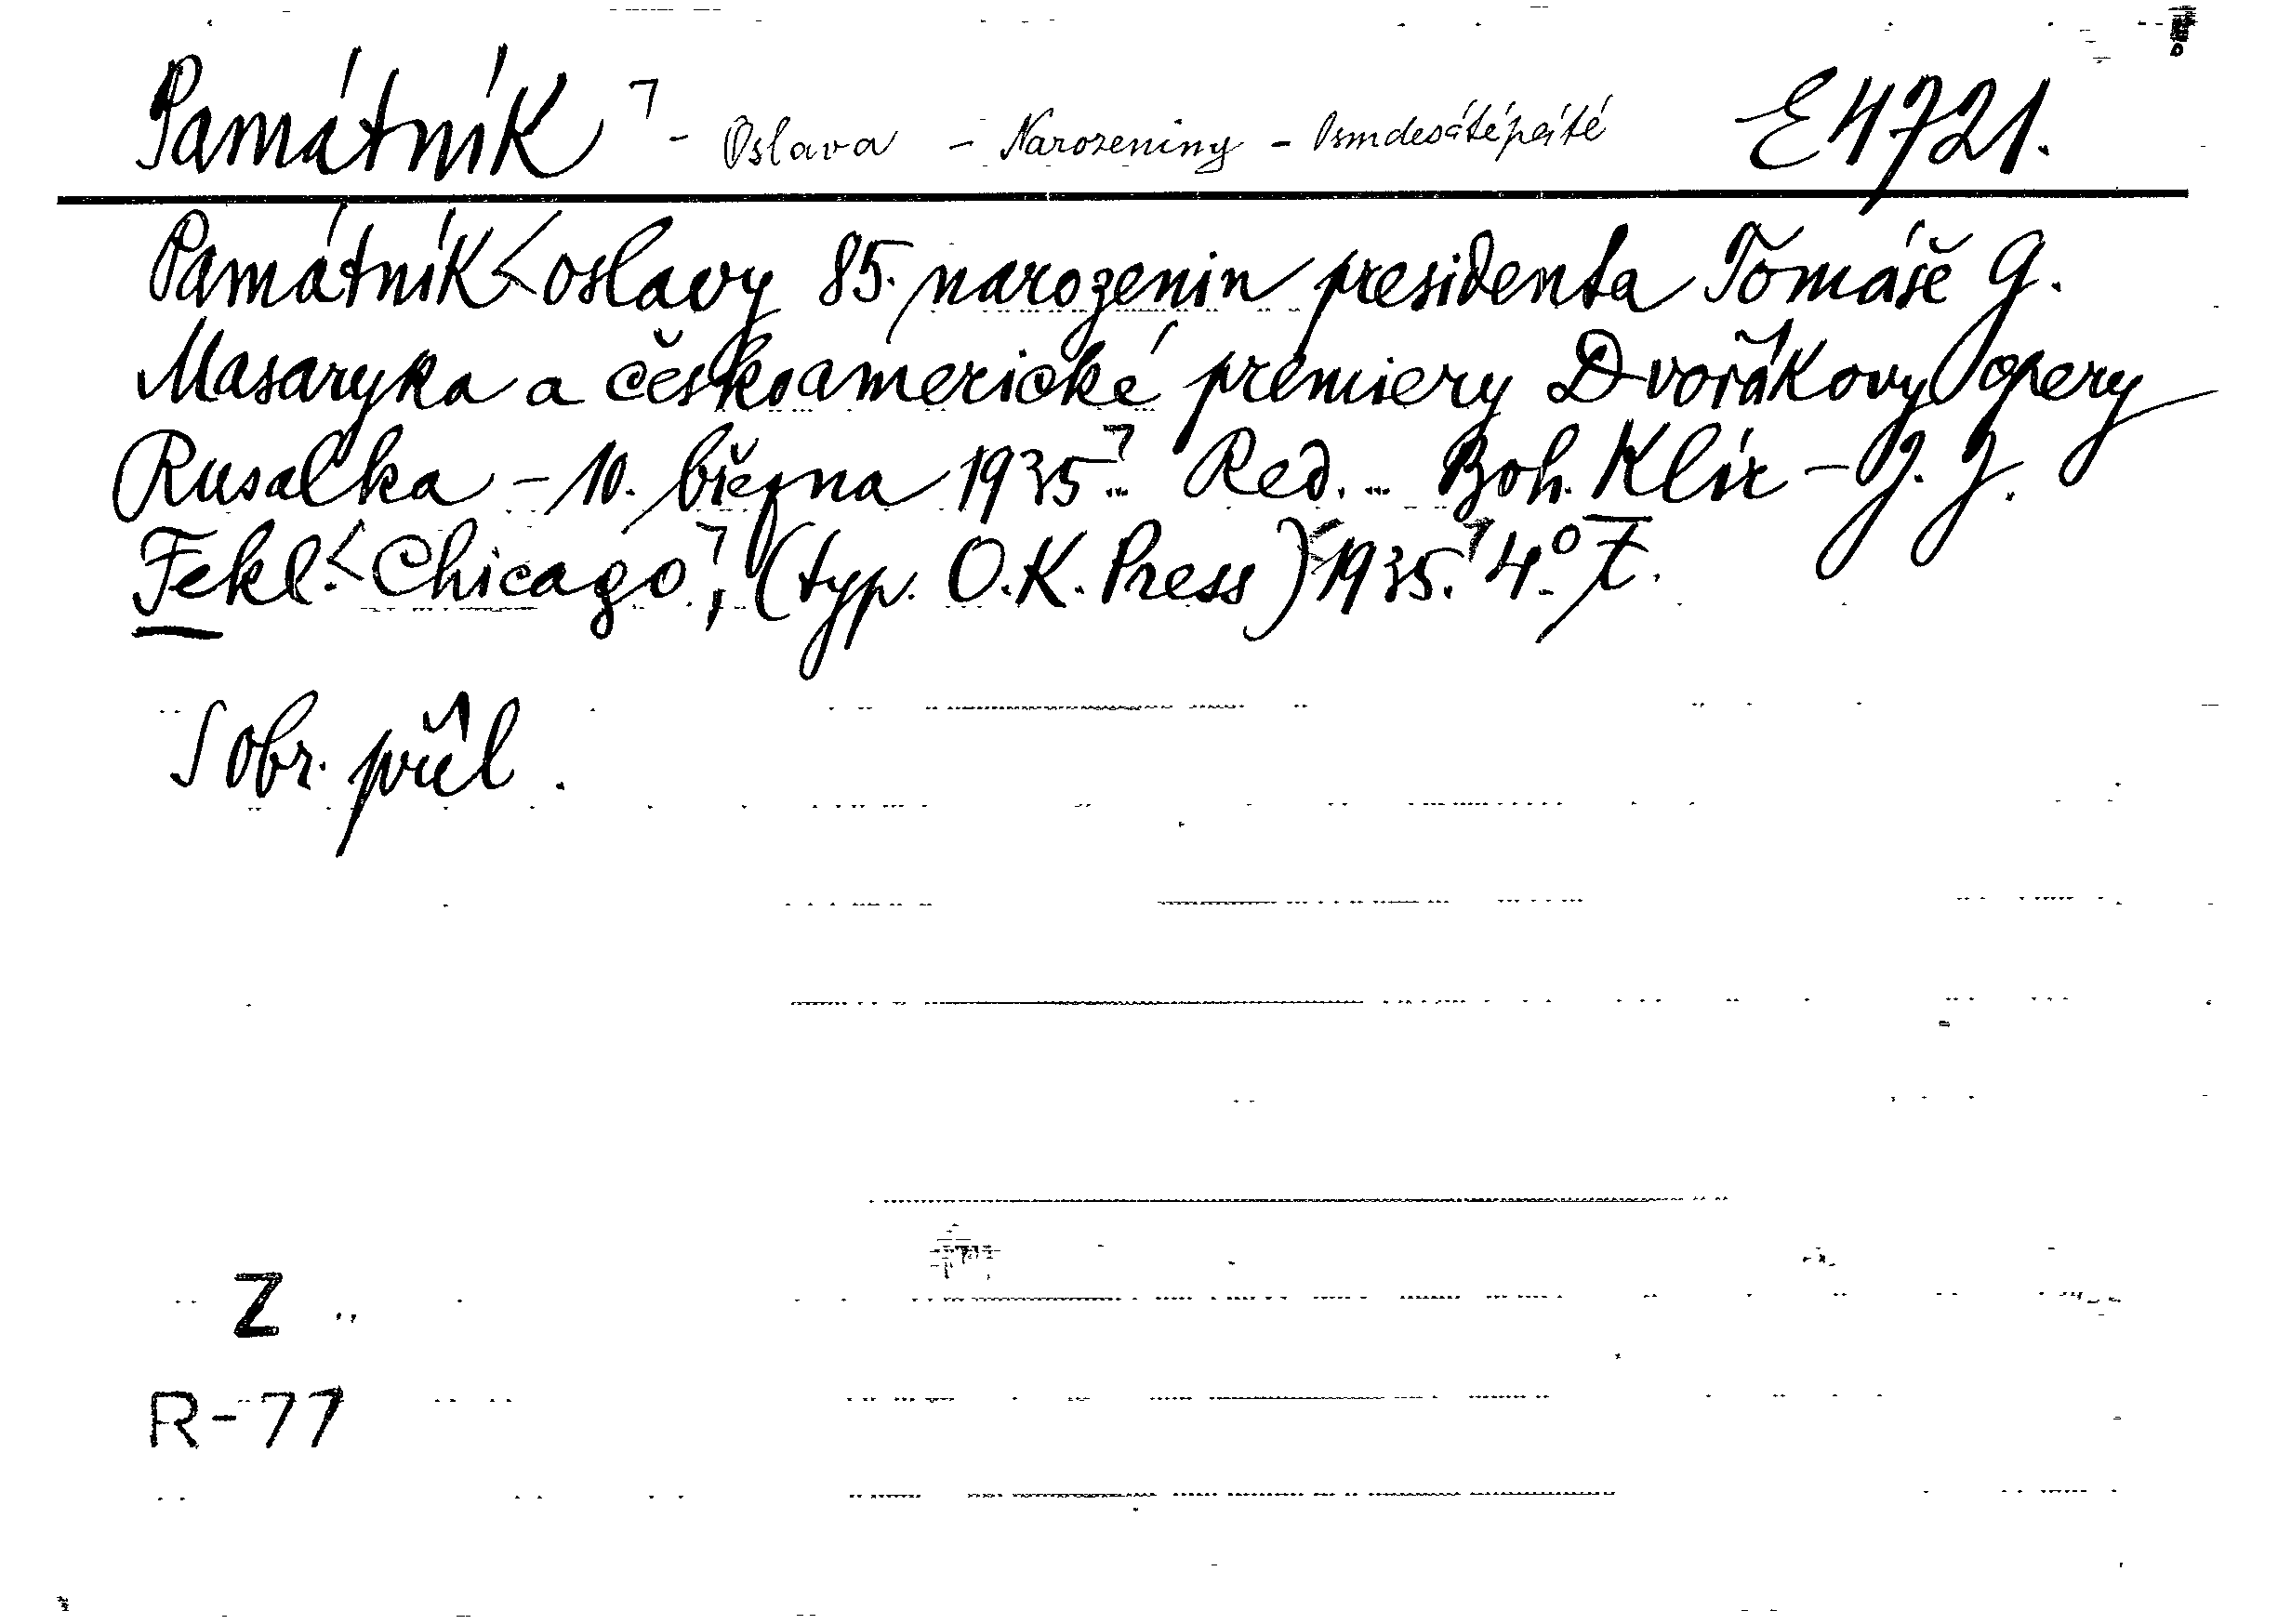 Památník - Oslava - Narozeniny - Osmdesátépáté E 4721.
Památník oslavy 85. narozenin presidenta Tomáše G.
Masaryka a českoamerické premiery Dvořákovy opery
Rusalka - 10. března 1935. Red. Boh. Klír - J. J.
Fekl. Chicago, (typ. O.K. Press) 1935. 4°. Z.
S obr. příl.
Z
R-77